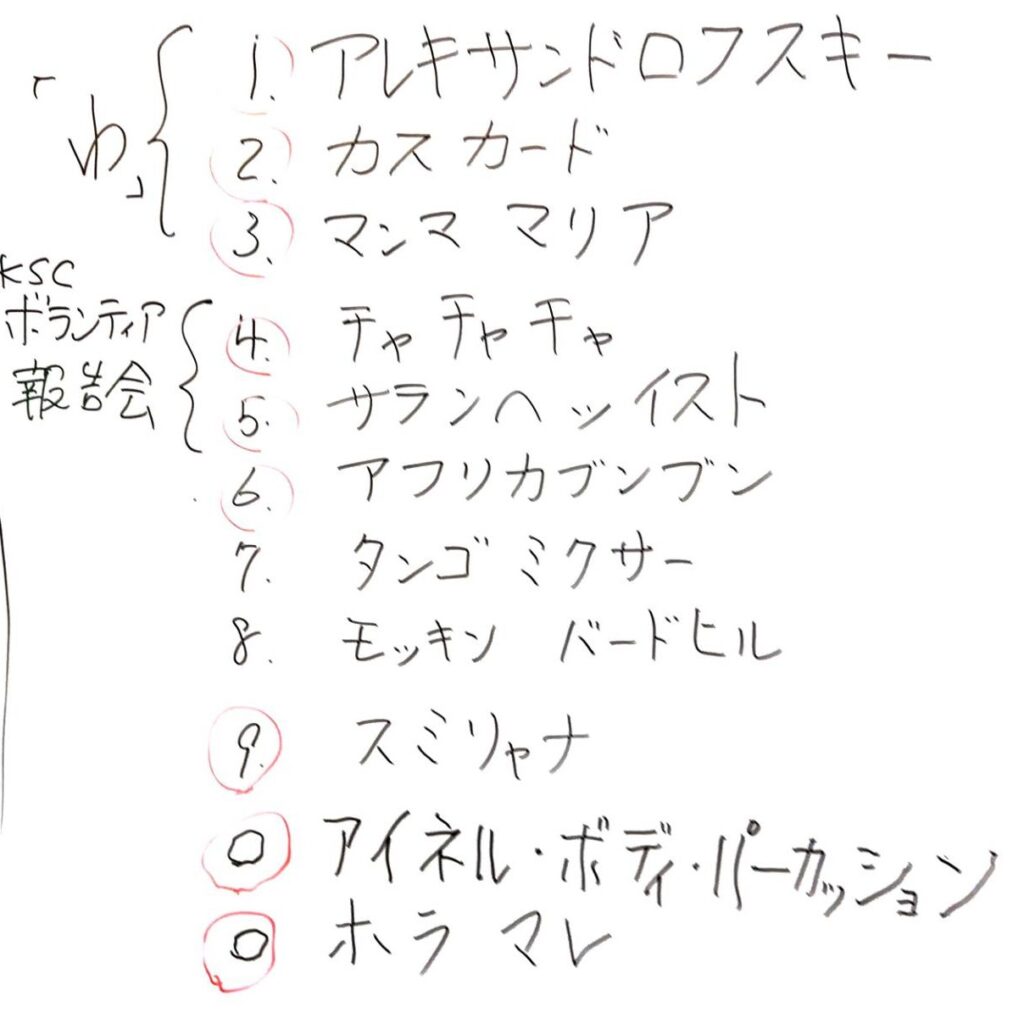 「わ」
1. アレキサンドロフスキー
2. カスカード
3. マンマ マリア
KSC
ボランティア
報告会
4. チャ チャ チャ
5. サランヘッイスト
6. アフリカブンブン
7. タンゴ ミクサー
8. モッキン バードヒル
9. スミリャナ
○ アイネル・ボディ・パーカッション
○ ホラ マレ